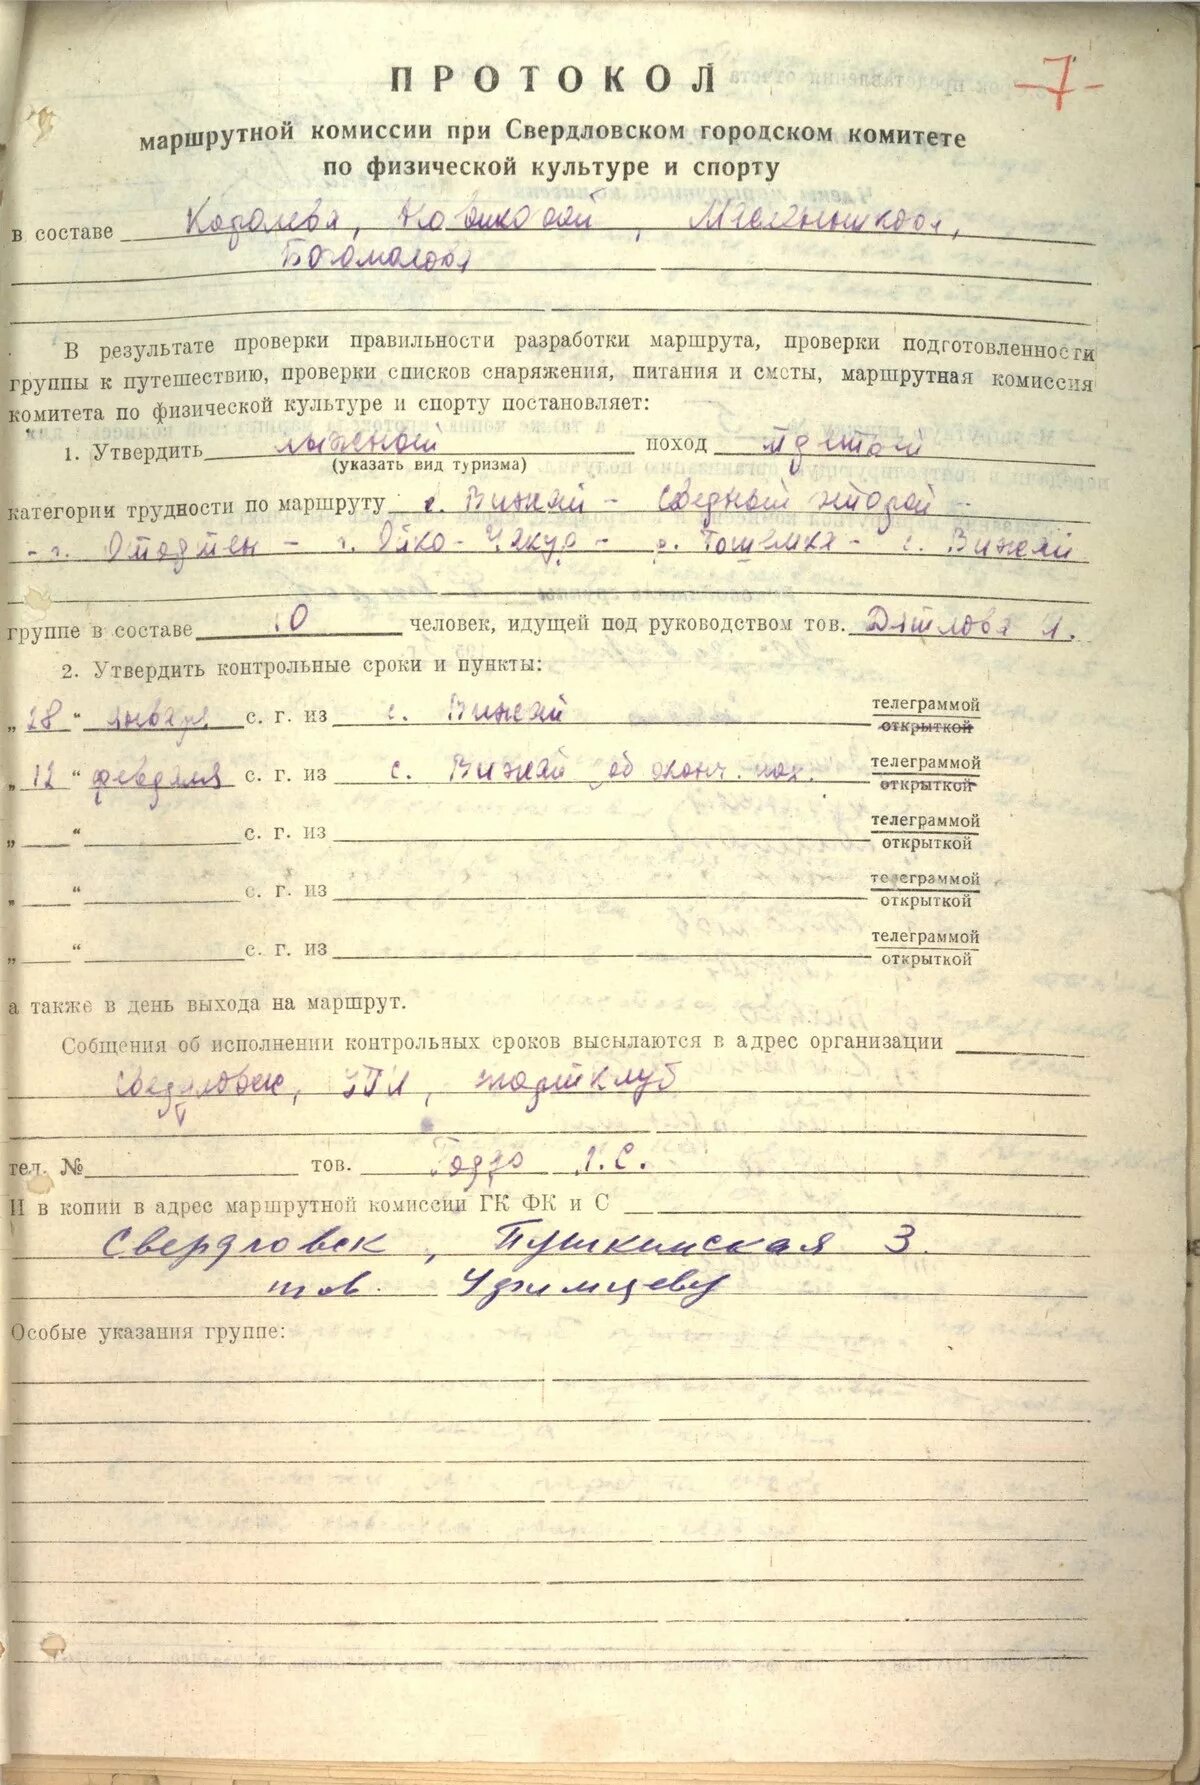 -7-
ПРОТОКОЛ
маршрутной комиссии при Свердловском городском комитете
по физической культуре и спорту
в составе Королева, Новиковой,
Богомолова
В результате проверки правильности разработки маршрута, проверки подготовленности
группы к путешествию, проверки списков снаряжения, питания и сметы, маршрутная комиссия
комитета по физической культуре и спорту постановляет:
1. Утвердить лыжный поход третьей
(указать вид туризма)
категории трудности по маршруту с. Вижай - второй -
- г. Отортен - г. Ойко-Чакур - р. Тошемка - с. Вижай
группе в составе 10 человек, идущей под руководством тов. Дятлова И.
2. Утвердить контрольные сроки и пункты:
„28“ января с. г. из с. Вижай телеграммой
открыткой
„12“ февраля с. г. из с. Вижай об оконч. пох. телеграммой
открыткой
„ “ с. г. из телеграммой
открыткой
„ “ с. г. из телеграммой
открыткой
„ “ с. г. из телеграммой
открыткой
а также в день выхода на маршрут.
Собщения об исполнении контрольных сроков высылаются в адрес организации
Свердловск, УПИ, спортклуб
тел. № тов. Гордо Л.С.
И в копии в адрес маршрутной комиссии ГК ФК и С
Свердловск, Пушкинская 3.
тов. Уфимцеву
Особые указания группе: